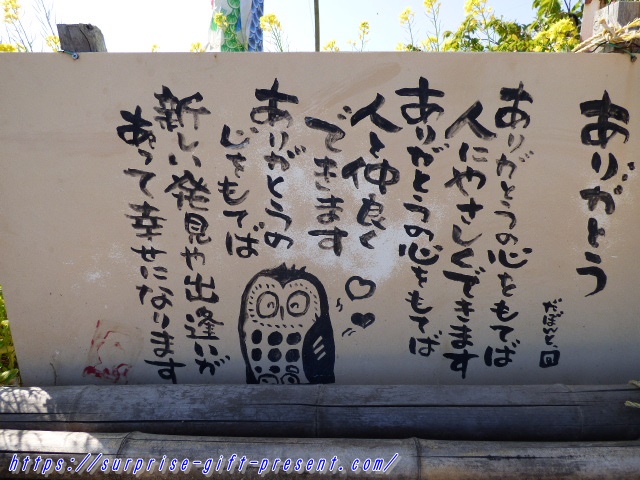 ありがとう
ありがとうの心をもてば
人にやさしくできます
ありがとうの心をもてば
人と仲良く
できます
ありがとうの
心をもてば
新しい発見や出逢いが
あって幸せになります
https://surprise-gift-present.com/